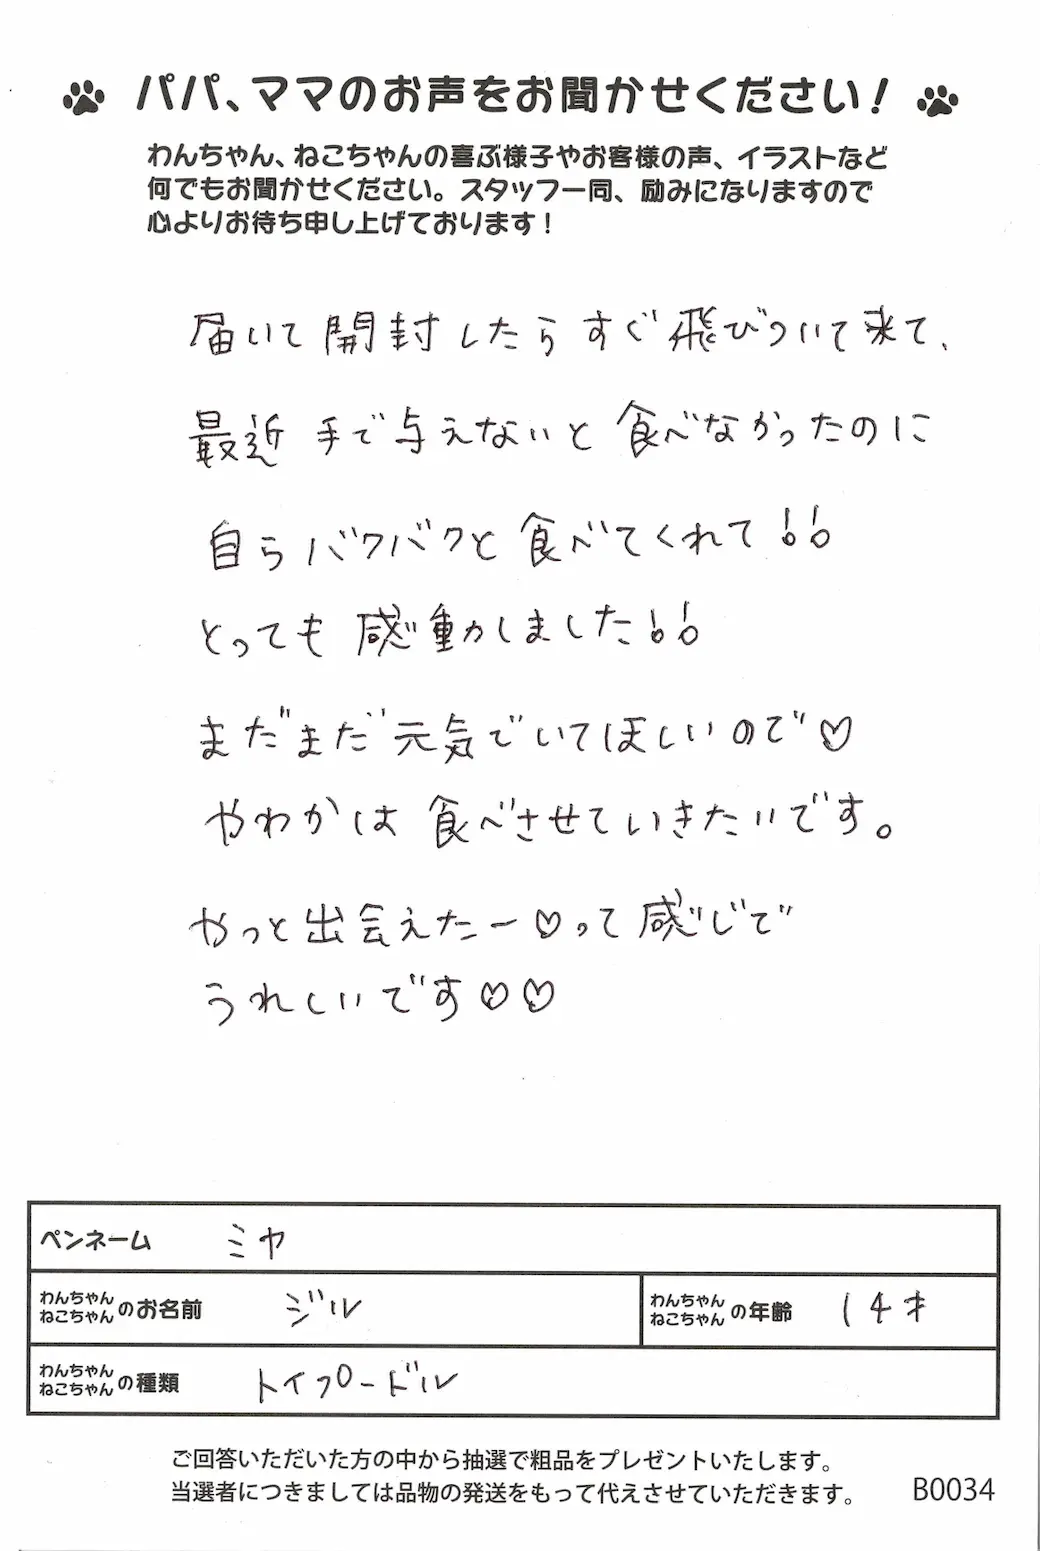 パパ、ママのお声をお聞かせください！
わんちゃん、ねこちゃんの喜ぶ様子やお客様の声、イラストなど
何でもお聞かせください。スタッフ一同、励みになりますので
心よりお待ち申し上げております！
届いて開封したらすぐ飛びついて来て、
最近手で与えないと食べなかったのに
自らバクバクと食べてくれて!!
とっても感動しました!!
まだまだ元気でいてほしいので♡
やわかは食べさせていきたいです。
やっと出会えたー♡って感じで
うれしいです♡♡
ペンネーム ミヤ
わんちゃん
ねこちゃん のお名前 ジル
わんちゃん
ねこちゃん の年齢 14才
わんちゃん
ねこちゃん の種類 トイプードル
ご回答いただいた方の中から抽選で粗品をプレゼントいたします。
当選者につきましては品物の発送をもって代えさせていただきます。
B0034